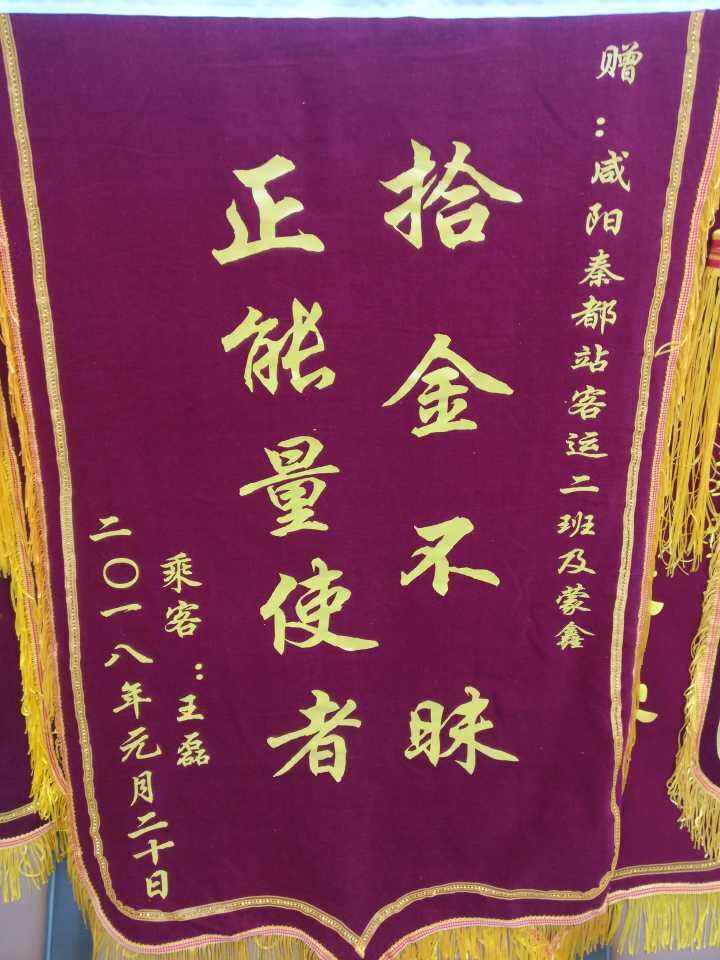 赠：咸阳秦都站客运二班及蒙鑫
拾金不昧
正能量使者
乘客：王磊
二〇一八年元月二十日